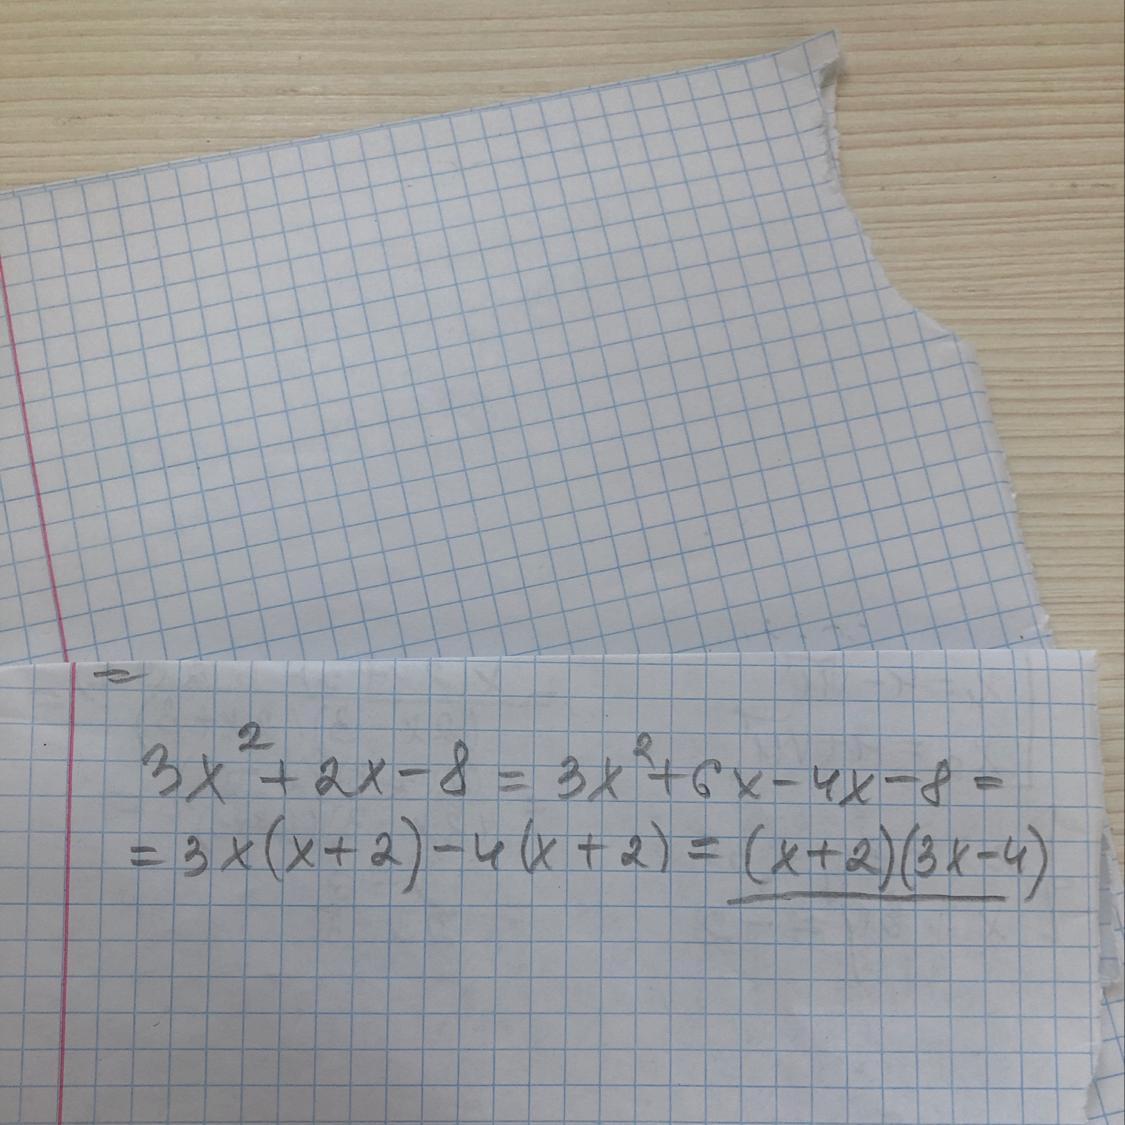 =
3x²+2x-8=3x²+6x-4x-8=
=3x(x+2)-4(x+2)=(x+2)(3x-4)